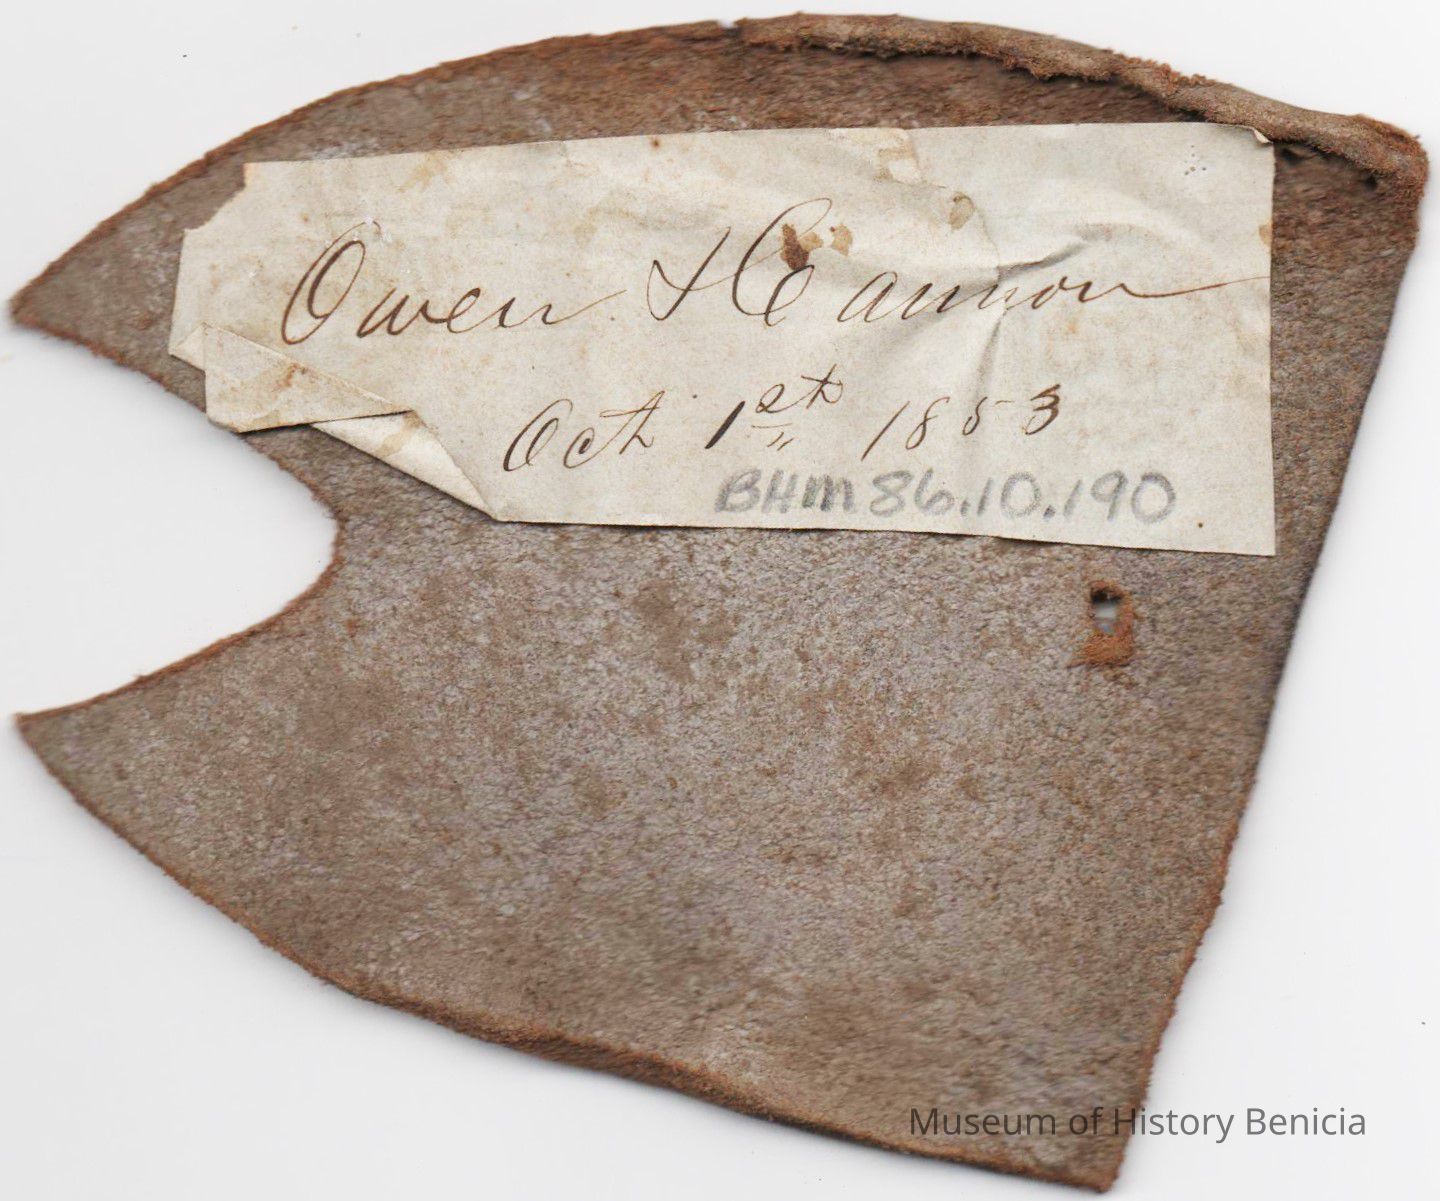 Owen Hannon
Oct 1st 1853
BHM 86.10.190
Museum of History Benicia